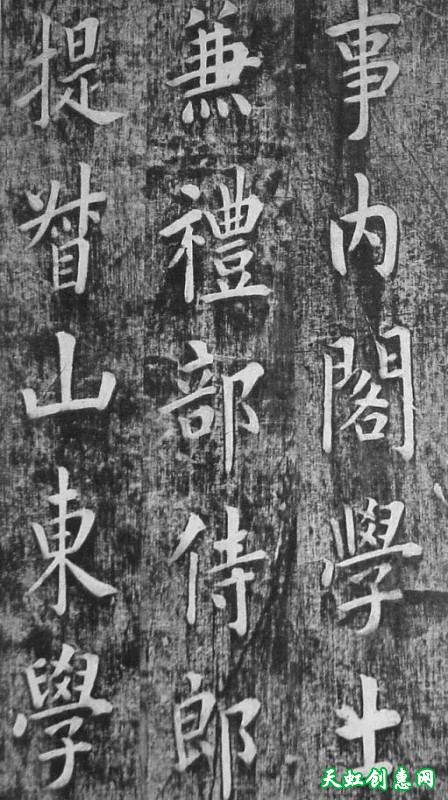 事内閣學士
兼禮部侍郎
提督山東學
天虹创惠网